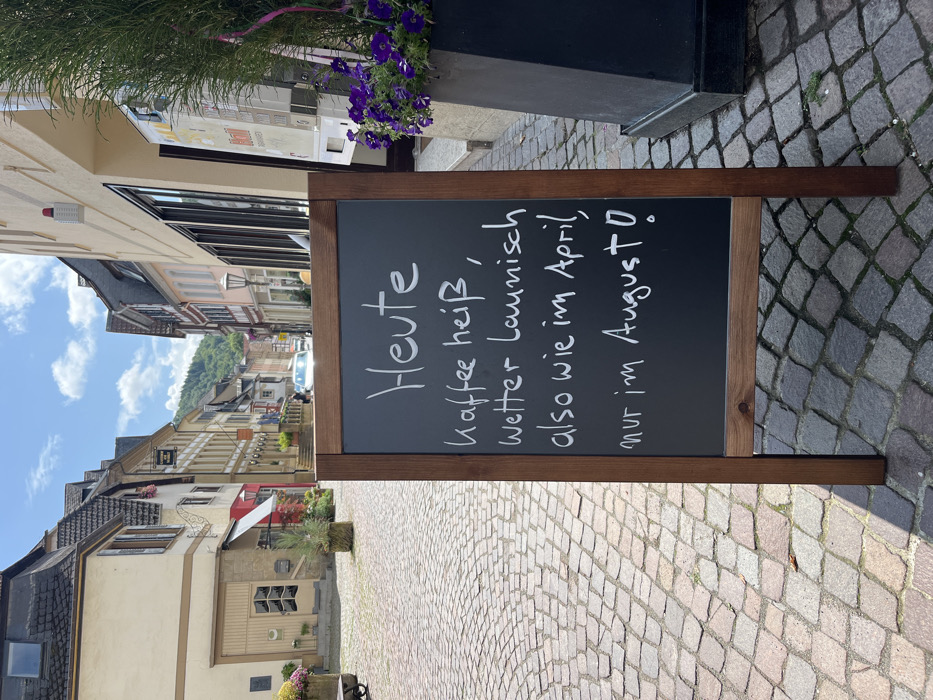 Heute
Kaffee heiß,
Wetter Launisch
also wie im April,
nur im August D!